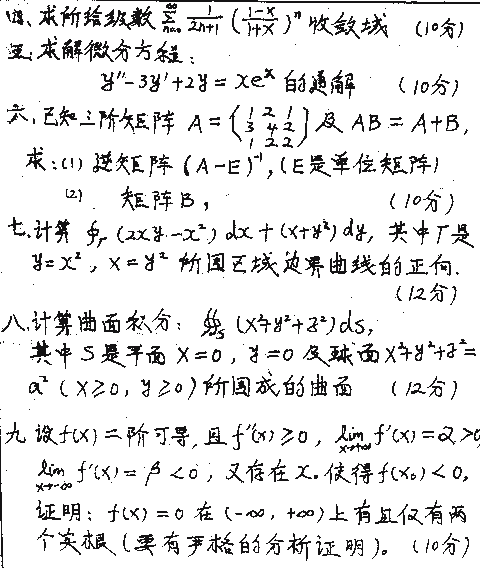 四、求所给级数 \sum_{n=0}^{\infty} \frac{1}{2n+1} (\frac{1-x}{1+x})^n 收敛域 (10分)
五、求解微分方程:
y''-3y'+2y = xe^x 的通解 (10分)
六、已知三阶矩阵 A = \begin{pmatrix} 1 & 2 & 1 \\ 3 & 4 & 2 \\ 1 & 2 & 2 \end{pmatrix} 及 AB = A+B,
求:(1) 逆矩阵 (A-E)^{-1}, (E是单位矩阵)
(2) 矩阵B, (10分)
七、计算 \oint_Γ (2xy-x^2) dx + (x+y^2) dy, 其中Γ是
y=x^2, x=y^2 所围区域边界曲线的正向.
(12分)
八、计算曲面积分: \oiint_S (x^2+y^2+z^2) ds,
其中S是平面 x=0, y=0 及球面 x^2+y^2+z^2=
a^2 (x≥0, y≥0) 所围成的曲面 (12分)
九、设f(x)二阶可导,且f''(x)≥0, \lim_{x→+∞} f'(x)=α>0,
\lim_{x→-∞} f'(x)=β<0, 又存在x_0使得f(x_0)<0,
证明: f(x)=0 在 (-∞, +∞)上有且仅有两
个实根(要有严格的分析证明)。(10分)